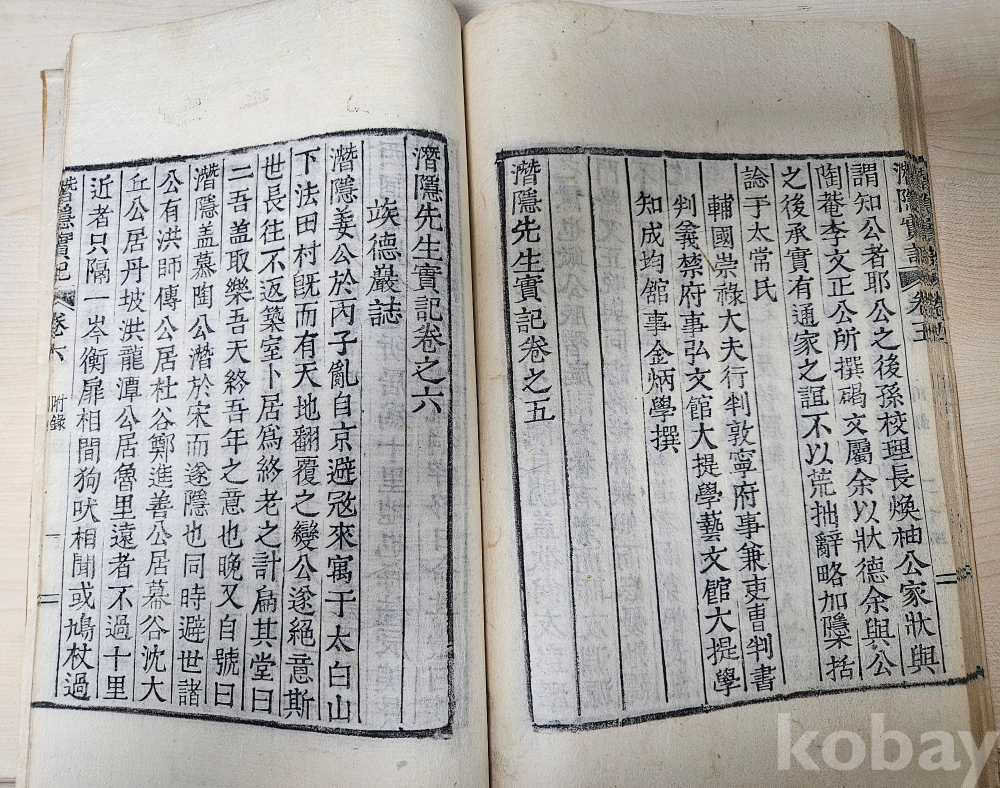 謂知公者耶公之後孫校理長煥柚公家狀與
陶菴李文正公所撰碣文屬余以狀德余與公
之後承實有通家之誼不以荒拙辭略加隱括
諗于太常氏
輔國崇祿大夫行判敦寧府事兼吏曹判書
判義禁府事弘文館大提學藝文館大提學
知成均館事金炳學撰
潛隱先生實記卷之五
潛隱先生實記卷之六
竢德巖誌
潛隱姜公於丙子亂自京避寇來寓于太白山
下法田村旣而有天地翻覆之變公遂絕意斯
世長往不返築室卜居爲終老之計扁其堂曰
二吾盖取樂吾天終吾年之意也晩又自號曰
潛隱盖慕陶公潛於宋而遂隱也同時避世諸
公有洪師傅公居杜谷鄭進善公居幕谷沈大
丘公居丹坡洪龍潭公居魯里遠者不過十里
近者只隔一岑衡扉相間狗吠相聞或鳩杖過
潛隱實記 卷六 附錄
kobay